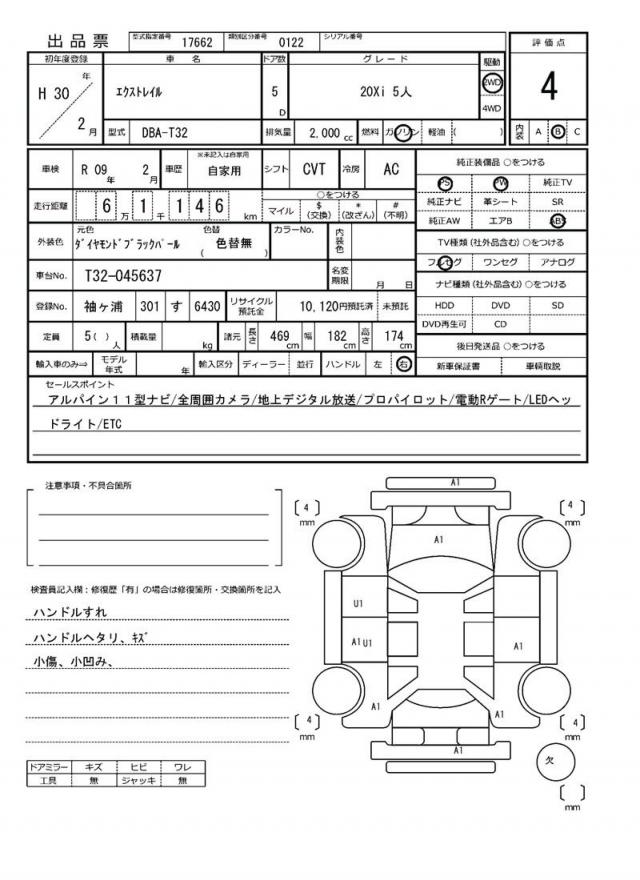 出品票 型式指定番号 17662 類別区分番号 0122 シリアル番号
初年度登録 車 名 ドア数 グレード 駆動 評価点
H 30 年 2 月 エクストレイル 5 D 20Xi 5人 2WD 4WD 4
型式 DBA-T32 排気量 2,000 cc 燃料 ガソリン 軽油 ( ) 内装 A B C
車検 R 09 年 2 月 車歴 ※未記入は自家用 自家用 シフト CVT 冷房 AC 純正装備品 ○をつける
PS PW 純正TV
走行距離 6 万 1 千 1 4 6 km ○をつける
マイル $ (交換) * (改ざん) # (不明)
純正ナビ 革シート SR
純正AW エアB ABS
外装色 元色 ダイヤモンドブラックパール 色替 ( 色替無 ) カラーNo. 内装色
TV種類 (社外品含む) ○をつける
フルセグ ワンセグ アナログ
車台No. T32-045637 名変期限 月 日
ナビ種類 (社外品含む) ○をつける
登録No. 袖ヶ浦 301 す 6430 リサイクル預託金 10,120円預託済 未預託
HDD DVD SD
DVD再生可 CD
定員 5( ) 人 積載量 kg 諸元 長さ 469 cm 幅 182 cm 高さ 174 cm
後日発送品 ○をつける
輸入車のみ⇒ モデル年式 年 輸入区分 ディーラー 並行 ハンドル 左 右
新車保証書 車輌取説
セールスポイント
アルパイン11型ナビ/全周囲カメラ/地上デジタル放送/プロパイロット/電動Rゲート/LEDヘッ
ドライト/ETC
注意事項・不具合箇所
検査員記入欄：修復歴「有」の場合は修復箇所・交換箇所を記入
ハンドルすれ
ハンドルヘタリ、キズ
小傷、小凹み、
ドアミラー キズ ヒビ ワレ
工具 無 ジャッキ 無
A1
[ 4 ] mm
[ 4 ] mm
A1
U1
A1 U1
A1
A1
A1
[ 4 ] mm
[ 4 ] mm
A1
欠
[ ] mm